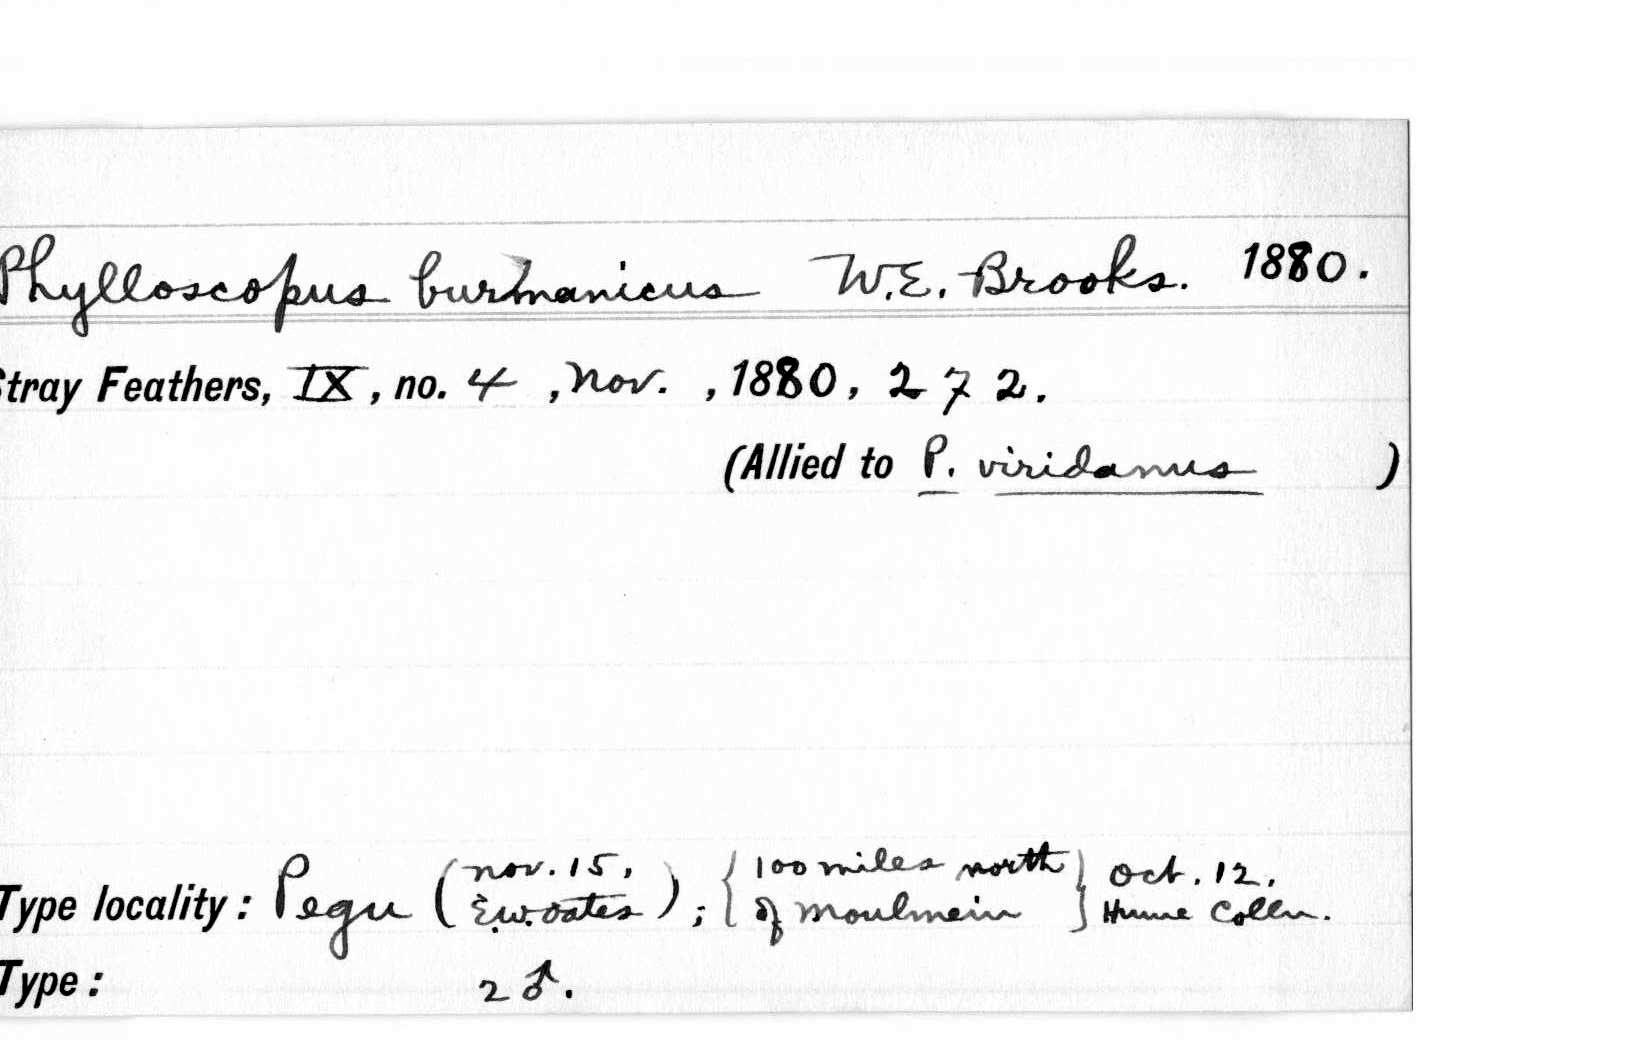 Phylloscopus burmanicus W.E. Brooks. 1880.
Stray Feathers, IX, no. 4, Nov., 1880, 272.
(Allied to P. viridanus )
Type locality: Pegu (Nov. 15, E.W. Oates); {100 miles north of Moulmein} Oct. 12, Hume Colln.
Type: 2 ♂.